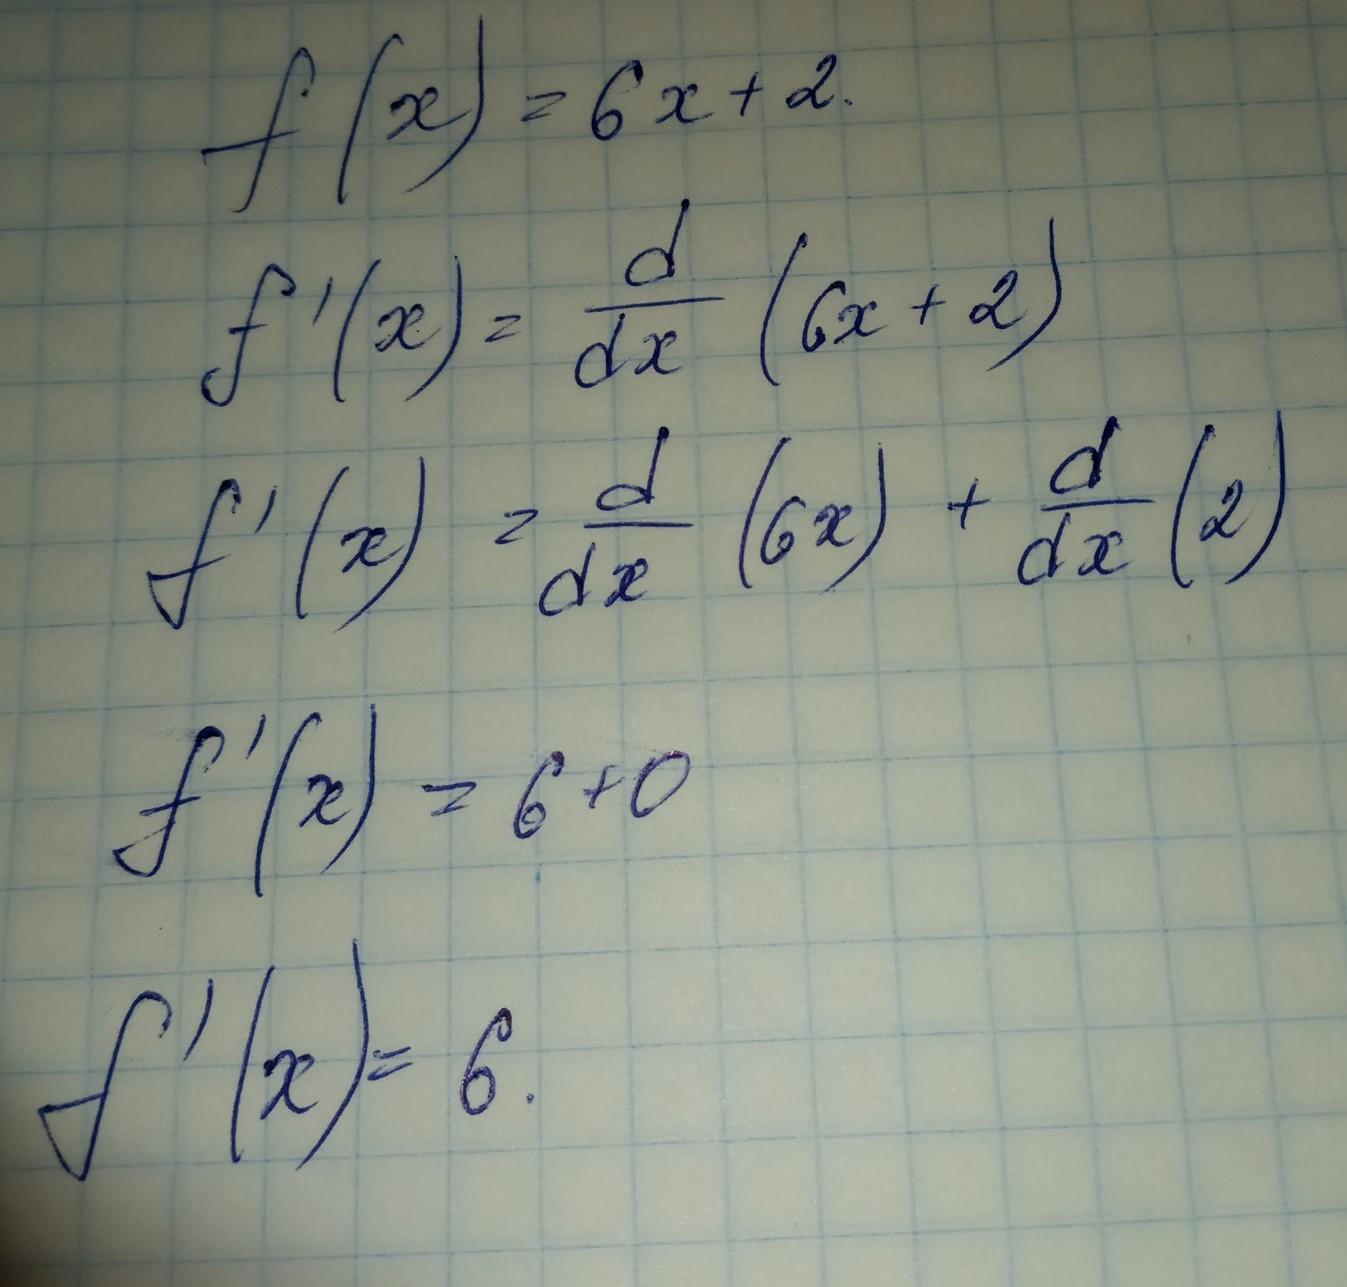 f(x) = 6x + 2.
f'(x) = d/dx (6x + 2)
f'(x) = d/dx (6x) + d/dx (2)
f'(x) = 6 + 0
f'(x) = 6.